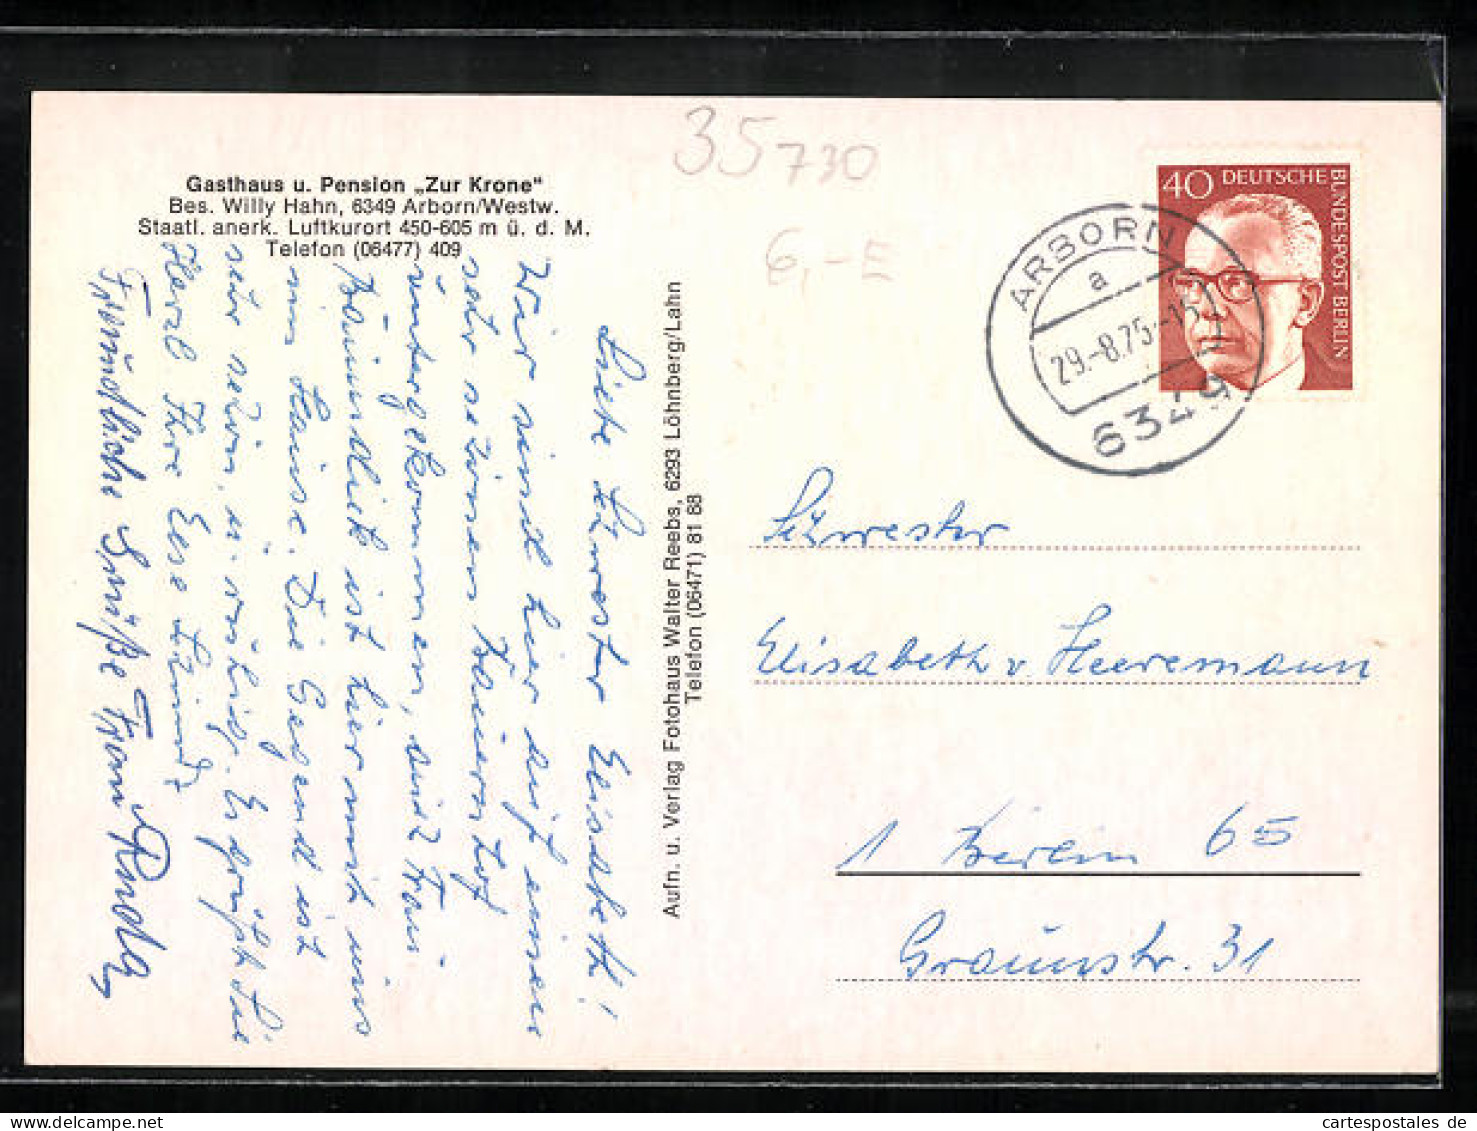 35730
6,-E
Gasthaus u. Pension „Zur Krone“
Bes. Willy Hahn, 6349 Arborn/Westw.
Staatl. anerk. Luftkurort 450-605 m ü. d. M.
Telefon (06477) 409
Liebe Schwester Elisabeth!
Wir sind hier auf einem
sehr schönen Bauernhof
untergekommen, auch Frau
ist hier mit uns
im Hause. Die Gegend ist
sehr schön u. ruhig. Es grüßt Sie
Herzl. Ihre
Freundliche Grüße Frau
Aufn. u. Verlag Fotohaus Walter Reebs, 6293 Löhnberg/Lahn
Telefon (06471) 81 88
40 DEUTSCHE BUNDESPOST BERLIN
ARBORN
a
29.-8.75.-15
6349
Schwester
Elisabeth v. Heeremann
1 Berlin 65
Graunstr. 31
cartespostales.de